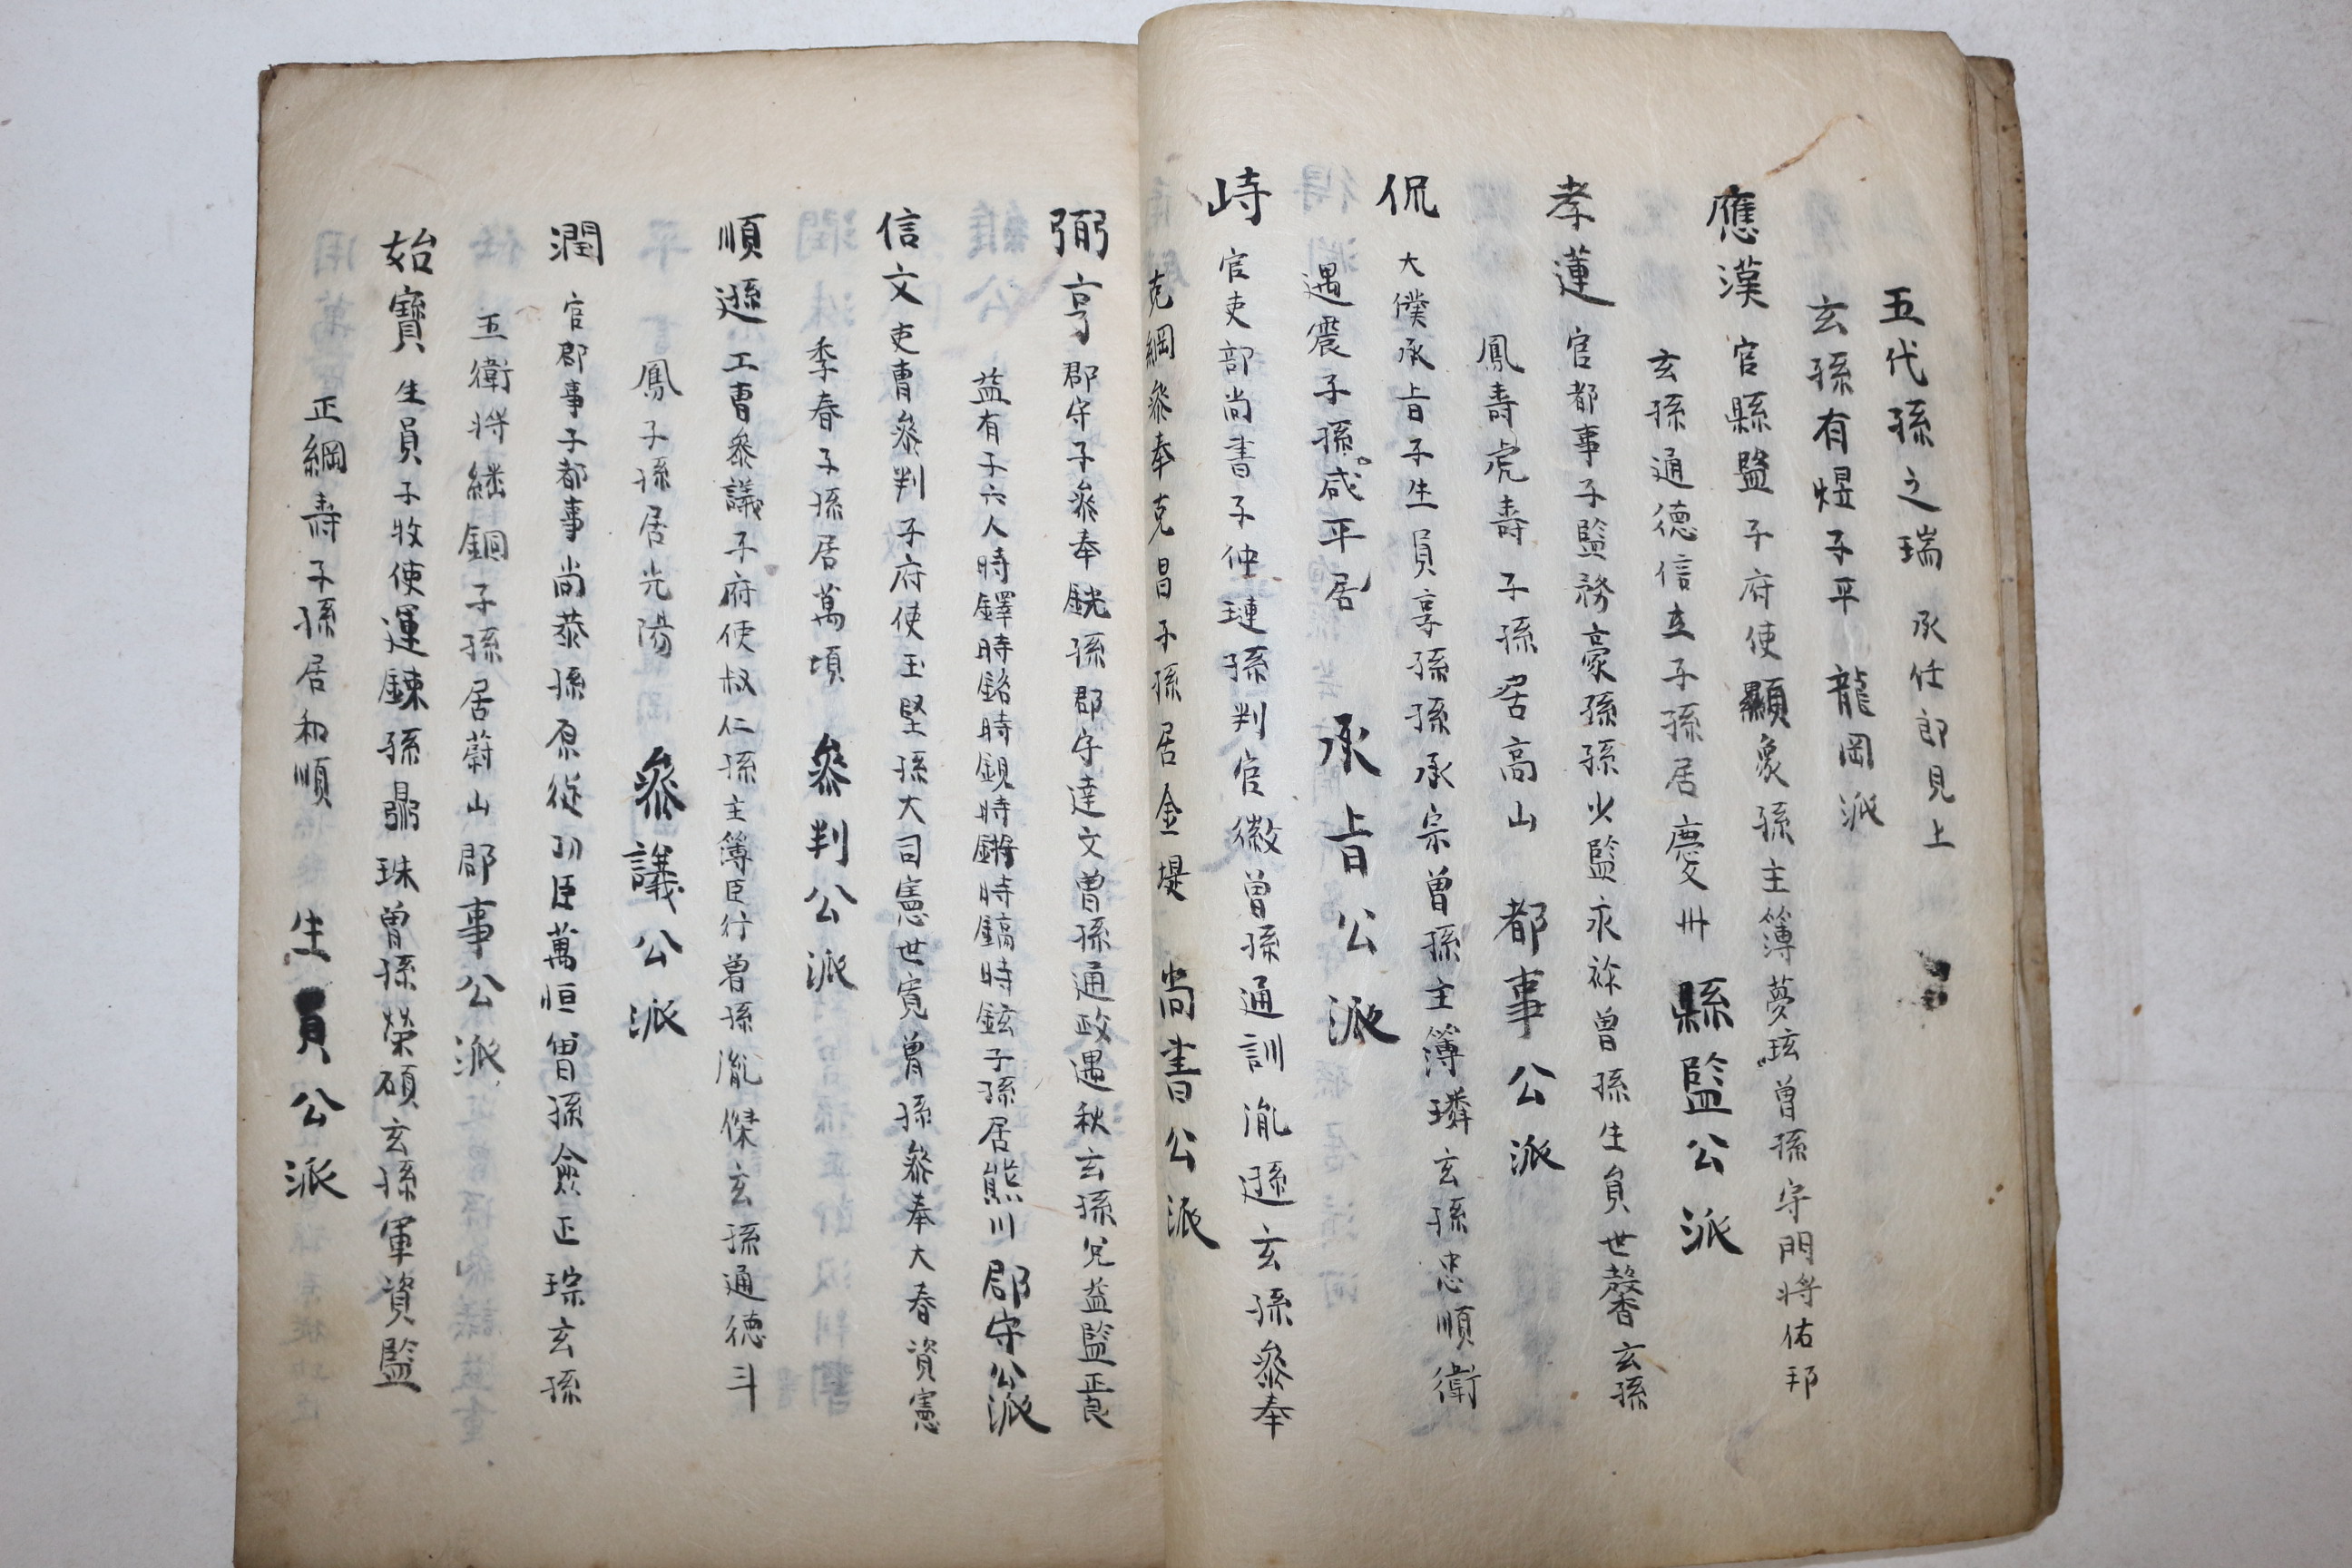 五代孫之瑞 承仕郎見上
玄孫有煜子平 龍岡派
應漢 官縣監子府使顯象孫主簿夢玹曾孫守門將佑邦
玄孫通德信立子孫居慶州 縣監公派
孝蓮 官都事子監務豪孫孫少監永祢曾孫生員世馨玄孫
鳳壽虎壽子孫居高山 都事公派
侃 大僕承旨子生員享孫孫承宗曾孫主簿璘玄孫忠順衛
遇震子孫咸平居 承旨公派
峙 官吏部尚書子仲璉孫判官徽曾孫通訓胤遜玄孫叅奉
克綱叅奉克昌子孫居金堤 尚書公派
弼亨 郡守子叅奉銧孫郡守達文曾孫通政遇秋玄孫兄益監
益有子六人時鐸時銘時鋧時鏘時鎬時鉉子孫居熊川 郡守公派
信文 吏曹叅判子府使玉堅孫大司憲世寬曾孫叅奉大春資憲
季春子孫居萬頃 叅判公派
順遜 工曹叅議子府使叔仁孫主簿臣行曾孫胤傑玄孫通德斗
鳳子孫居光陽 叅議公派
潤 官郡事子都事尚恭孫原從功臣萬恒曾孫僉正琮玄孫
五衛將繼錮子孫居蔚山郡事公派
始寶 生員子牧使運鍊孫鼎珠曾孫榮碩玄孫軍資監
正綱壽子孫居和順 生員公派